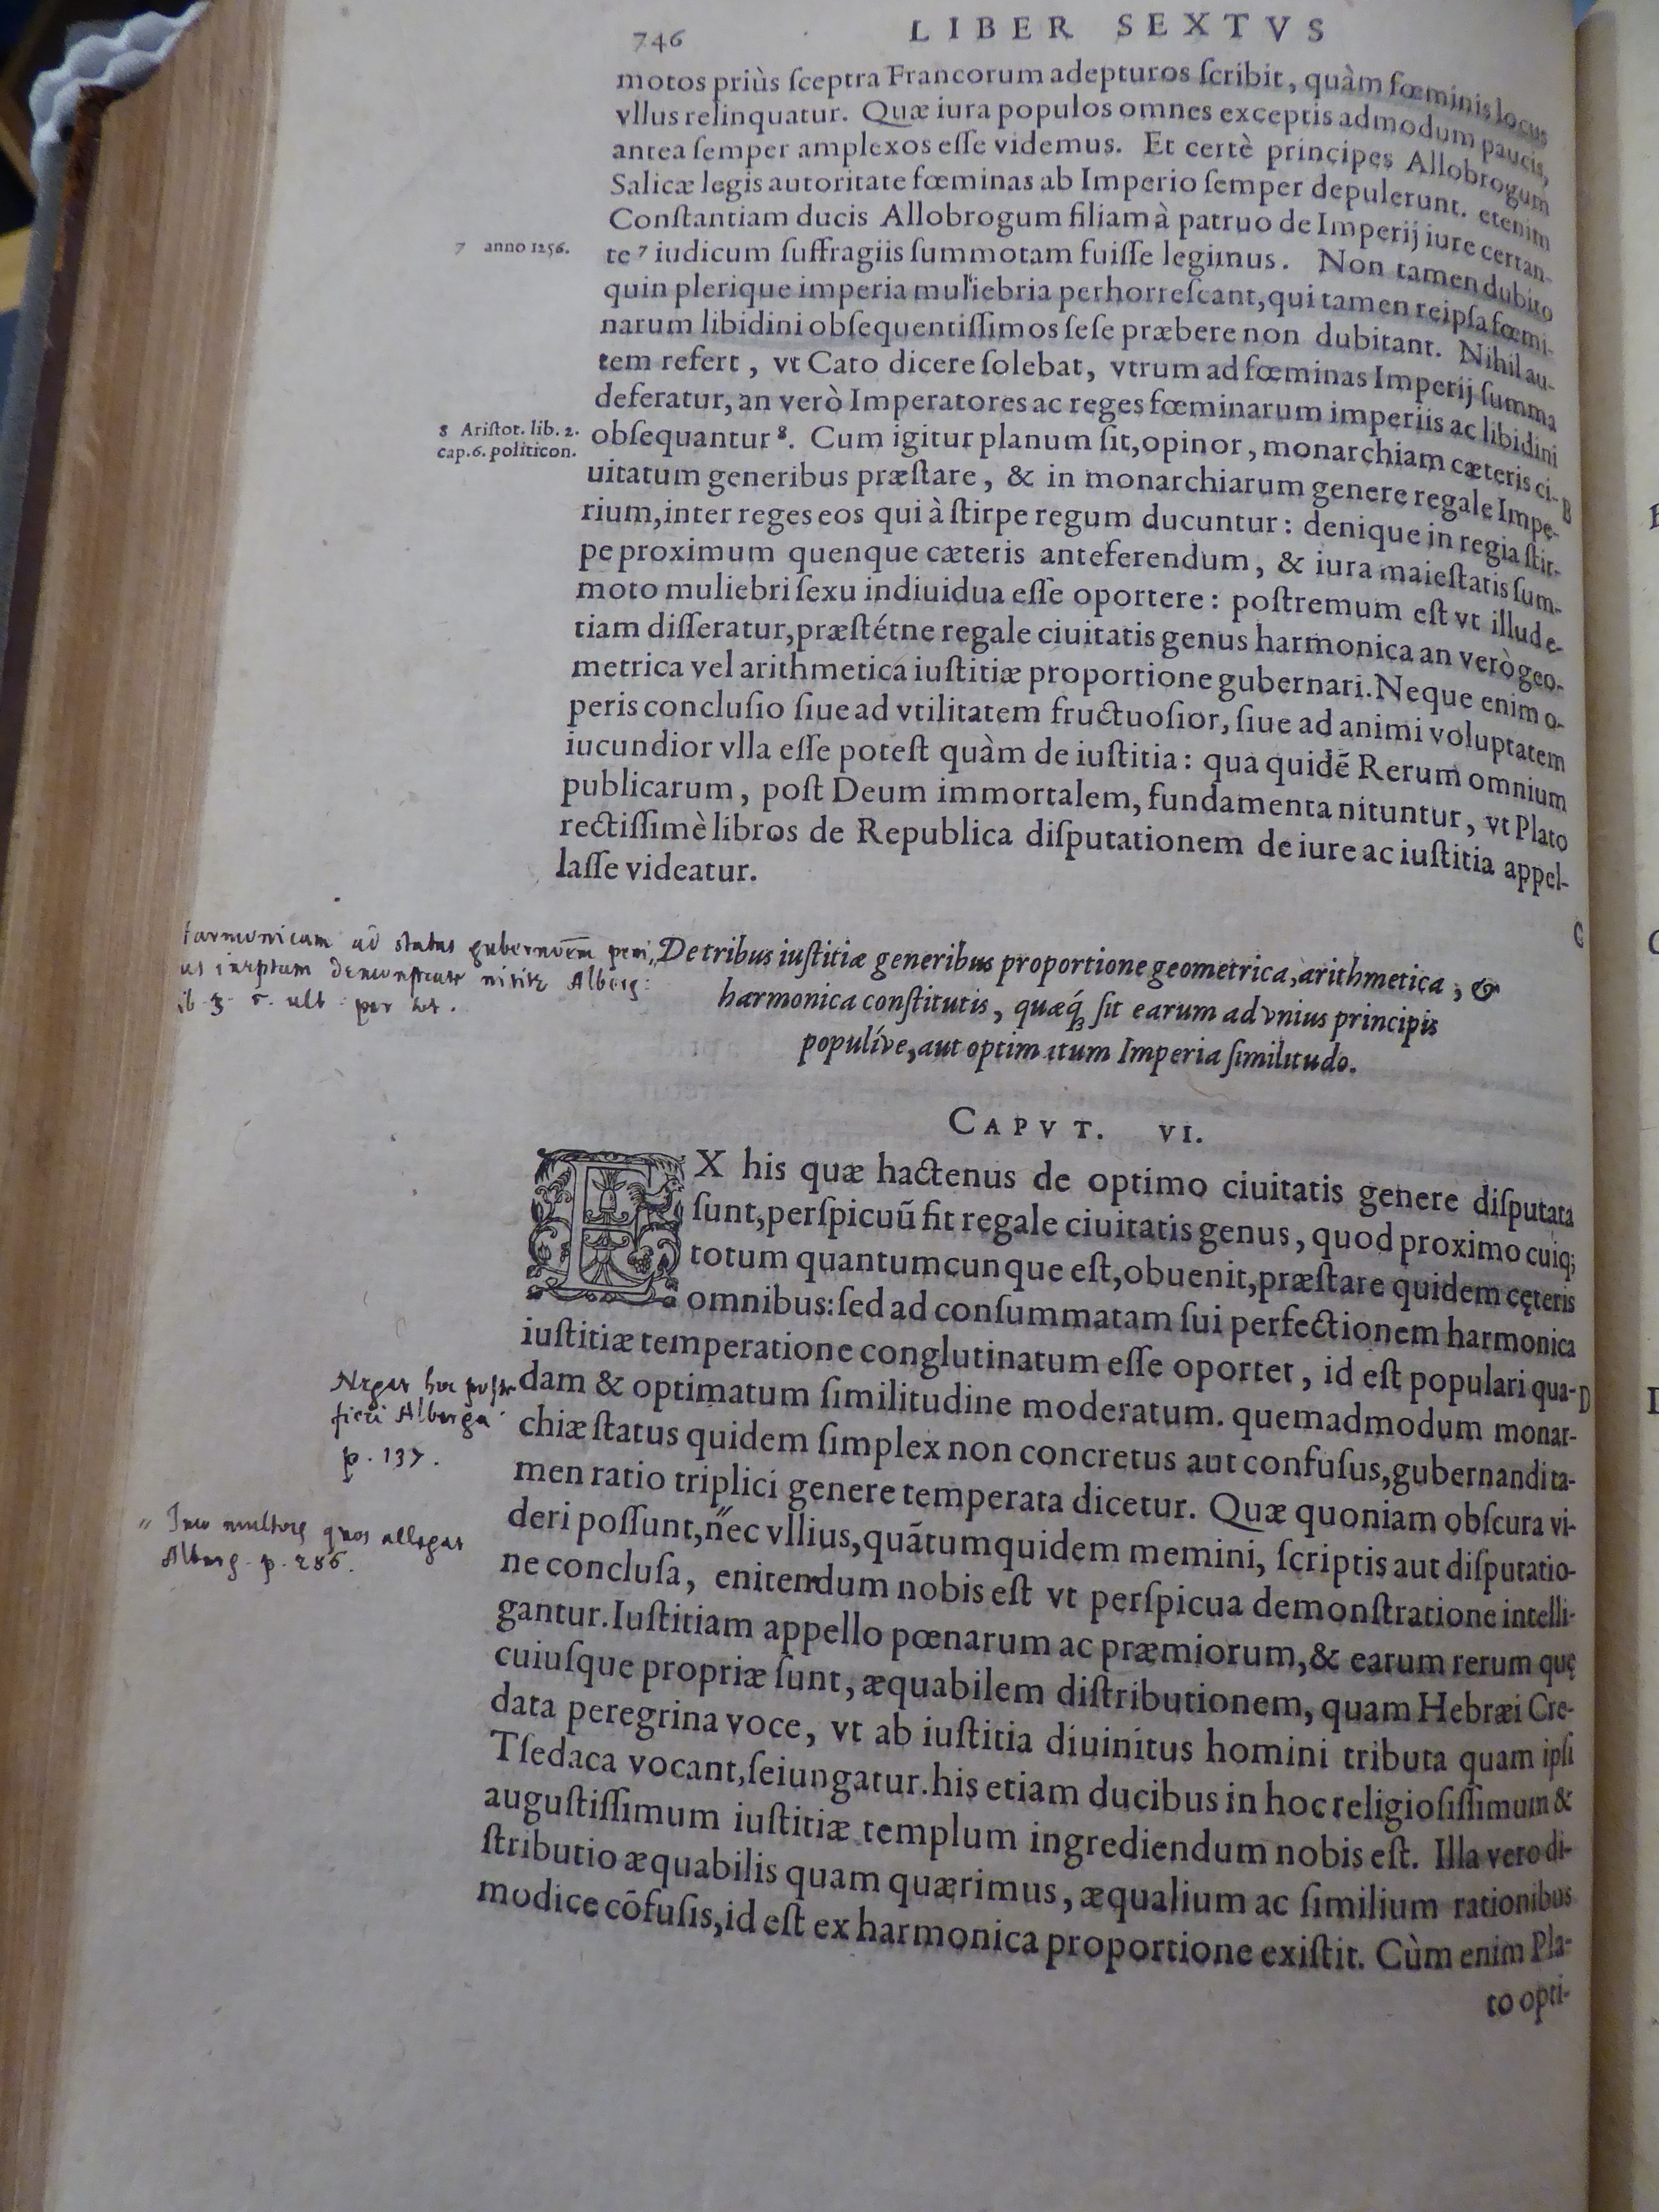 746
LIBER SEXTVS
motos priùs ſceptra Francorum adepturos ſcribit, quàm fœminis locus
vllus relinquatur. Quæ iura populos omnes exceptis admodum paucis,
antea ſemper amplexos eſſe videmus. Et certè principes Allobrogum
Salicæ legis autoritate fœminas ab Imperio ſemper depulerunt. etenim
Conſtantiam ducis Allobrogum filiam à patruo de Imperij iure certan-
7 anno 1256.
te ⁷ iudicum ſuffragiis ſummotam fuiſſe legimus. Non tamen dubito
quin plerique imperia muliebria perhorreſcant, qui tamen reipſa fœmi-
narum libidini obſequentiſſimos ſeſe præbere non dubitant. Nihil au-
tem refert, vt Cato dicere ſolebat, vtrum ad fœminas Imperij ſumma
deferatur, an verò Imperatores ac reges fœminarum imperiis ac libidini
8 Ariſtot. lib. 2.
cap. 6. politicon.
obſequantur ⁸. Cum igitur planum ſit, opinor, monarchiam cæteris ci-
B
uitatum generibus præſtare, & in monarchiarum genere regale Impe-
rium, inter reges eos qui à ſtirpe regum ducuntur: denique in regia ſtir-
pe proximum quenque cæteris anteferendum, & iura maieſtatis ſum-
moto muliebri ſexu indiuidua eſſe oportere: poſtremum eſt vt illud e-
tiam diſſeratur, præſtétne regale ciuitatis genus harmonica an verò geo-
metrica vel arithmetica iuſtitiæ proportione gubernari. Neque enim o-
peris concluſio ſiue ad vtilitatem fructuoſior, ſiue ad animi voluptatem
iucundior vlla eſſe poteſt quàm de iuſtitia: qua quidẽ Rerum omnium
publicarum, poſt Deum immortalem, fundamenta nituntur, vt Plato
rectiſſimè libros de Republica diſputationem de iure ac iuſtitia appel-
laſſe videatur.
C
De tribus iuſtitiæ generibus proportione geometrica, arithmetica, &
harmonica conſtitutis, quæq́ꝫ ſit earum ad vnius principis
populíve, aut optimatum Imperia ſimilitudo.
harmonicam ad status
ineptum demonstrare nititur Alberg:
lib. 3. c. ult. per tot.
CAPVT. VI.
EX his quæ hactenus de optimo ciuitatis genere diſputata
ſunt, perſpicuũ fit regale ciuitatis genus, quod proximo cuiq;
totum quantumcunque eſt, obuenit, præſtare quidem cęteris
omnibus: ſed ad conſummatam ſui perfectionem harmonica
iuſtitiæ temperatione conglutinatum eſſe oportet, id eſt populari qua-
D
Negat hoc posse
fieri Alberga
p. 137.
dam & optimatum ſimilitudine moderatum. quemadmodum monar-
chiæ ſtatus quidem ſimplex non concretus aut confuſus, gubernandi ta-
men ratio triplici genere temperata dicetur. Quæ quoniam obſcura vi-
" Imo multos quos allegat
Alberg. p. 286.
deri poſſunt, "nec vllius, quãtum quidem memini, ſcriptis aut diſputatio-
ne concluſa, enitendum nobis eſt vt perſpicua demonſtratione intelli-
gantur. Iuſtitiam appello pœnarum ac præmiorum, & earum rerum quę
cuiuſque propriæ ſunt, æquabilem diſtributionem, quam Hebræi Cre-
data peregrina voce, vt ab iuſtitia diuinitus homini tributa quam ipſi
Tſedaca vocant, ſeiungatur. his etiam ducibus in hoc religioſiſſimum &
auguſtiſſimum iuſtitiæ templum ingrediendum nobis eſt. Illa vero di-
ſtributio æquabilis quam quærimus, æqualium ac ſimilium rationibus
modice cõfuſis, id eſt ex harmonica proportione exiſtit. Cùm enim Pla-
to opti-